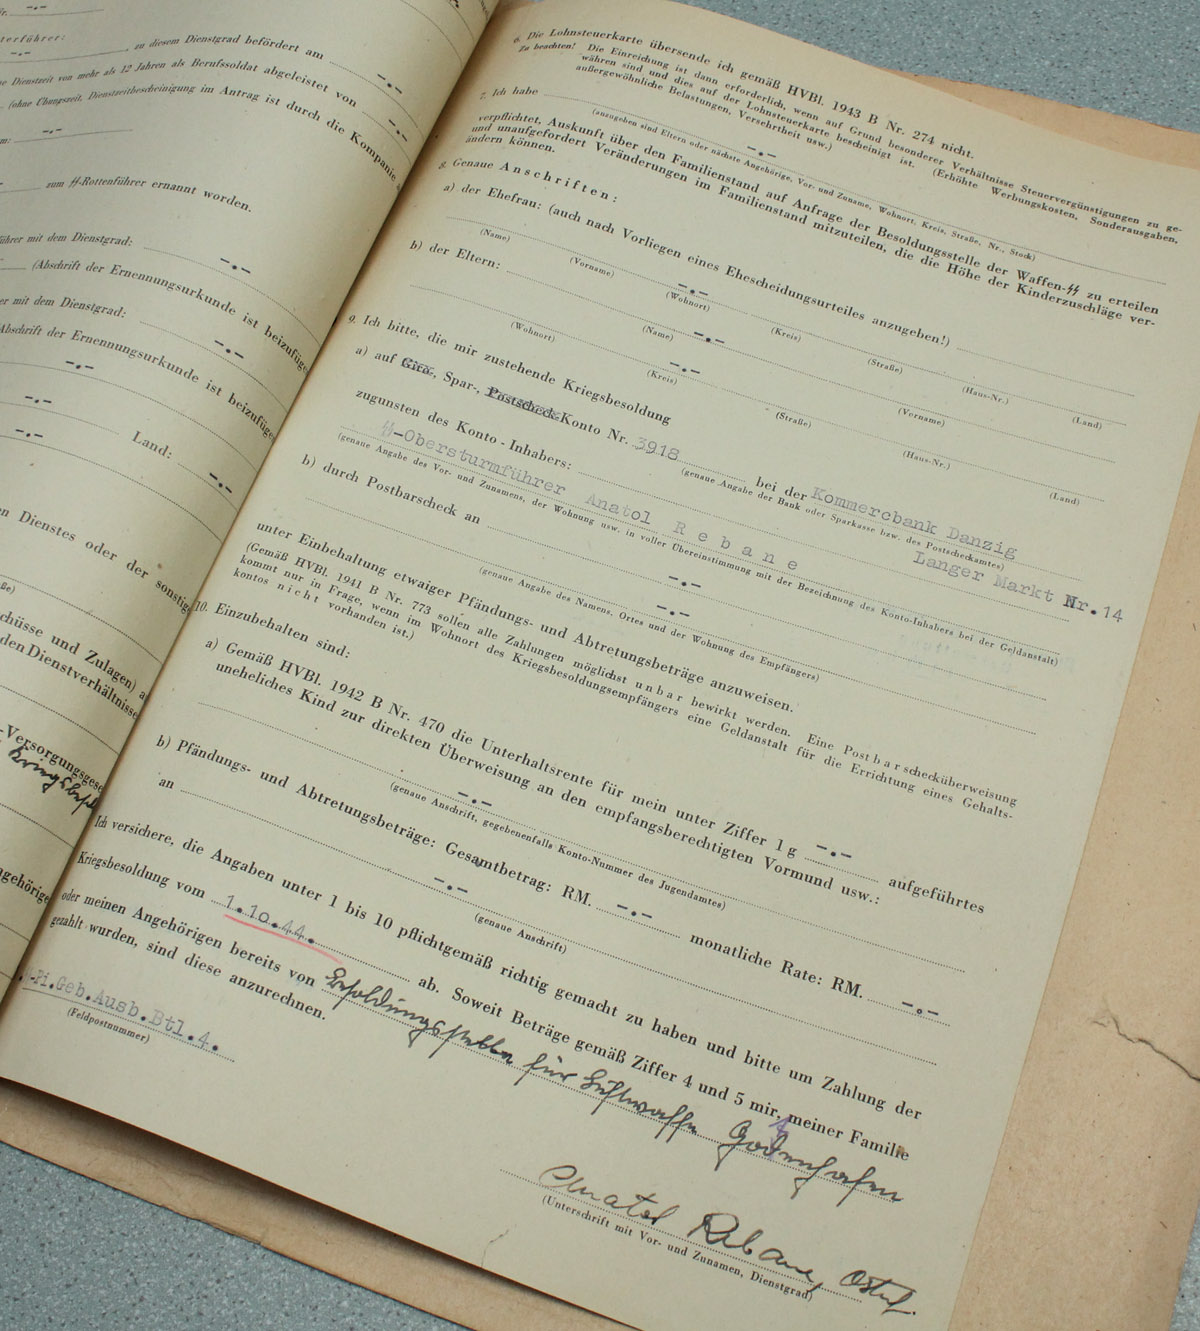 zu diesem Dienstgrad befördert am -.-
Dienstzeit von mehr als 12 Jahren als Berufssoldat abgeleistet von -.-
(ohne Übungszeit, Dienstzeitbescheinigung im Antrag ist durch die Kompanie
-.-
zum SS-Rottenführer ernannt worden.
mit dem Dienstgrad: -.-
(Abschrift der Ernennungsurkunde ist beizufüge
mit dem Dienstgrad: -.-
Abschrift der Ernennungsurkunde ist beizufüge
-.-
-.-
-.- Land: -.-
Dienstes oder der sonstig
chüsse und Zulagen)
den Dienstverhältnisse
-Versorgungsgese
ngehörige
6. Die Lohnsteuerkarte übersende ich gemäß HVBl. 1943 B Nr. 274 nicht.
Zu beachten! Die Einreichung ist dann erforderlich, wenn auf Grund besonderer Verhältnisse Steuervergünstigungen zu ge-
währen sind und dies auf der Lohnsteuerkarte bescheinigt ist. (Erhöhte Werbungskosten, Sonderausgaben,
außergewöhnliche Belastungen, Versehrtheit usw.)
7. Ich habe -.-
(anzugeben sind Eltern oder nächste Angehörige, Vor- und Zuname, Wohnort, Kreis, Straße, Nr., Stock)
verpflichtet, Auskunft über den Familienstand auf Anfrage der Besoldungsstelle der Waffen-SS zu erteilen
und unaufgefordert Veränderungen im Familienstand mitzuteilen, die die Höhe der Kinderzuschläge ver-
ändern können.
8. Genaue Anschriften:
a) der Ehefrau: (auch nach Vorliegen eines Ehescheidungsurteiles anzugeben!)
-.-
(Name) (Vorname) (Wohnort) (Kreis) (Straße) (Haus-Nr.) (Land)
b) der Eltern: -.-
(Name) (Vorname)
-.-
(Wohnort) (Kreis) (Straße) (Haus-Nr.) (Land)
9. Ich bitte, die mir zustehende Kriegsbesoldung
a) auf Giro-, Spar-, Postscheck-Konto Nr. 3918 bei der Kommerzbank Danzig
(genaue Angabe der Bank oder Sparkasse bzw. des Postscheckamtes)
Langer Markt Nr.14
zugunsten des Konto-Inhabers:
SS-Obersturmführer Anatol Rebane
(genaue Angabe des Vor- und Zunamens, der Wohnung usw. in voller Übereinstimmung mit der Bezeichnung des Konto-Inhabers bei der Geldanstalt)
b) durch Postbarscheck an -.-
(genaue Angabe des Namens, Ortes und der Wohnung des Empfängers)
-.-
unter Einbehaltung etwaiger Pfändungs- und Abtretungsbeträge anzuweisen.
(Gemäß HVBl. 1941 B Nr. 773 sollen alle Zahlungen möglichst unbar bewirkt werden. Eine Postbarschecküberweisung
kommt nur in Frage, wenn im Wohnort des Kriegsbesoldungsempfängers eine Geldanstalt für die Errichtung eines Gehalts-
kontos nicht vorhanden ist.)
10. Einzubehalten sind:
a) Gemäß HVBl. 1942 B Nr. 470 die Unterhaltsrente für mein unter Ziffer 1 g -.- aufgeführtes
uneheliches Kind zur direkten Überweisung an den empfangsberechtigten Vormund usw.:
-.-
(genaue Anschrift, gegebenenfalls Konto-Nummer des Jugendamtes)
b) Pfändungs- und Abtretungsbeträge: Gesamtbetrag: RM. -.- monatliche Rate: RM. -.-
an -.-
(genaue Anschrift)
Ich versichere, die Angaben unter 1 bis 10 pflichtgemäß richtig gemacht zu haben und bitte um Zahlung der
Kriegsbesoldung vom 1.10.44. ab. Soweit Beträge gemäß Ziffer 4 und 5 mir, meiner Familie
oder meinen Angehörigen bereits von Besoldungsstelle für Luftwaffe Gotenhafen
gezahlt wurden, sind diese anzurechnen.
-Pi.Geb.Ausb.Btl.4.
(Feldpostnummer)
Anatol Rebane, Ostuf.
(Unterschrift mit Vor- und Zunamen, Dienstgrad)